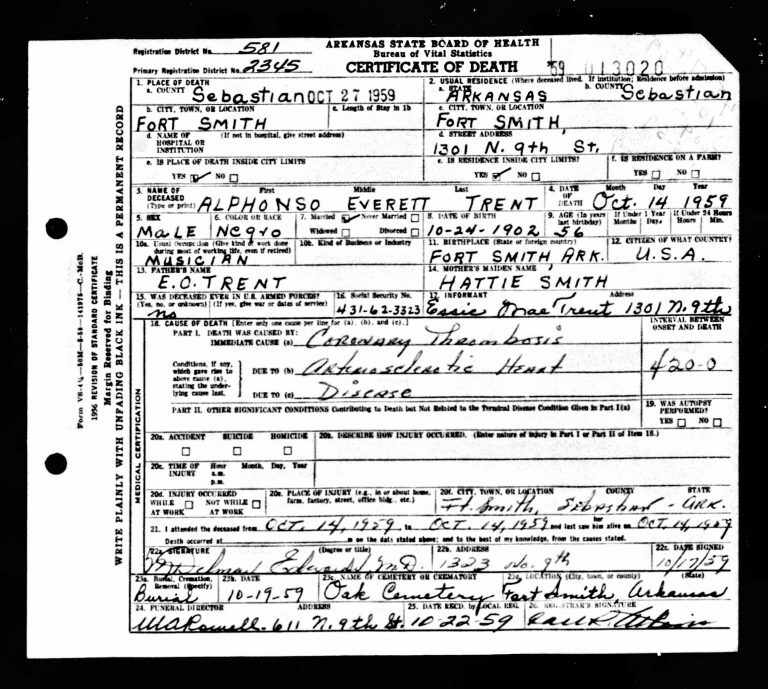 Registration District No. 581
ARKANSAS STATE BOARD OF HEALTH
Bureau of Vital Statistics
Primary Registration District No. 2345
CERTIFICATE OF DEATH
'59 013020
1. PLACE OF DEATH
a. COUNTY Sebastian OCT 27 1959
2. USUAL RESIDENCE (Where deceased lived. If institution; Residence before admission)
a. STATE ARKANSAS b. COUNTY Sebastian
b. CITY, TOWN, OR LOCATION c. Length of Stay in 1b
FORT SMITH
c. CITY, TOWN, OR LOCATION
FORT SMITH,
d. NAME OF HOSPITAL OR INSTITUTION (If not in hospital, give street address)
d. STREET ADDRESS
1301 N. 9th St,
e. IS PLACE OF DEATH INSIDE CITY LIMITS
YES ☑ NO ☐
e. IS RESIDENCE INSIDE CITY LIMITS?
YES ☑ NO ☐
f. IS RESIDENCE ON A FARM?
YES ☐ NO ☐
3. NAME OF DECEASED (Type or print) First Middle Last
ALPHONSO EVERETT TRENT
4. DATE OF DEATH Month Day Year
Oct. 14 1959
5. SEX
MaLE
6. COLOR OR RACE
Negro
7. Married ☑ Never Married ☐
Widowed ☐ Divorced ☐
8. DATE OF BIRTH
10-24-1902
9. AGE (In years last birthday) 56
If Under 1 Year Months Days
If Under 24 Hours Hours Min.
10a. Usual Occupation (Give kind of work done during most of working life, even if retired)
MUSICIAN
10b. Kind of Business or Industry
11. BIRTHPLACE (State or foreign country)
FORT SMITH ARK.
12. CITIZEN OF WHAT COUNTRY?
U.S.A.
13. FATHER'S NAME
E.O. TRENT
14. MOTHER'S MAIDEN NAME
HATTIE SMITH
15. WAS DECEASED EVER IN U.S. ARMED FORCES?
(Yes, no, or unknown) (If yes, give war or dates of service)
no
16. Social Security No.
431-62-3323
17. INFORMANT Address
Essie Mae Trent 1301 N. 9th
18. CAUSE OF DEATH [Enter only one cause per line for (a), (b), and (c).]
INTERVAL BETWEEN ONSET AND DEATH
PART I. DEATH WAS CAUSED BY:
IMMEDIATE CAUSE (a) Coronary Thrombosis
Conditions, if any, which gave rise to above cause (a), stating the underlying cause last.
DUE TO (b) Arteriosclerotic Heart
420-0
DUE TO (c) Disease
PART II. OTHER SIGNIFICANT CONDITIONS Contributing to Death but Not Related to the Terminal Disease Condition Given in Part I(a)
19. WAS AUTOPSY PERFORMED?
YES ☐ NO ☐
20a. ACCIDENT SUICIDE HOMICIDE
☐ ☐ ☐
20b. DESCRIBE HOW INJURY OCCURRED. (Enter nature of injury in Part I or Part II of Item 18.)
20c. TIME OF INJURY Hour a.m. p.m. Month, Day, Year
20d. INJURY OCCURRED
WHILE AT WORK ☐ NOT WHILE AT WORK ☐
20e. PLACE OF INJURY (e.g., in or about home, farm, factory, street, office bldg., etc.)
20f. CITY, TOWN, OR LOCATION COUNTY STATE
Ft. Smith, Sebastian - Ark.
21. I attended the deceased from Oct. 14, 1959 to Oct. 14, 1959 and last saw her alive on Oct. 14, 1959
Death occurred at m on the date stated above; and to the best of my knowledge, from the causes stated.
22a. SIGNATURE (Degree or title)
M.D.
22b. ADDRESS
1323 No. 9th
22c. DATE SIGNED
10/17/59
23a. Burial, Cremation, Removal (Specify)
Burial
23b. DATE
10-19-59
23c. NAME OF CEMETERY OR CREMATORY
Oak Cemetery
23d. LOCATION (City, town, or county) (State)
Fort Smith, Arkansas
24. FUNERAL DIRECTOR ADDRESS
611 N. 9th St.
25. DATE RECD. BY LOCAL REG.
10-22-59
26. REGISTRAR'S SIGNATURE
MEDICAL CERTIFICATION
WRITE PLAINLY WITH UNFADING BLACK INK — THIS IS A PERMANENT RECORD
Margin Reserved for Binding
1956 REVISION OF STANDARD CERTIFICATE